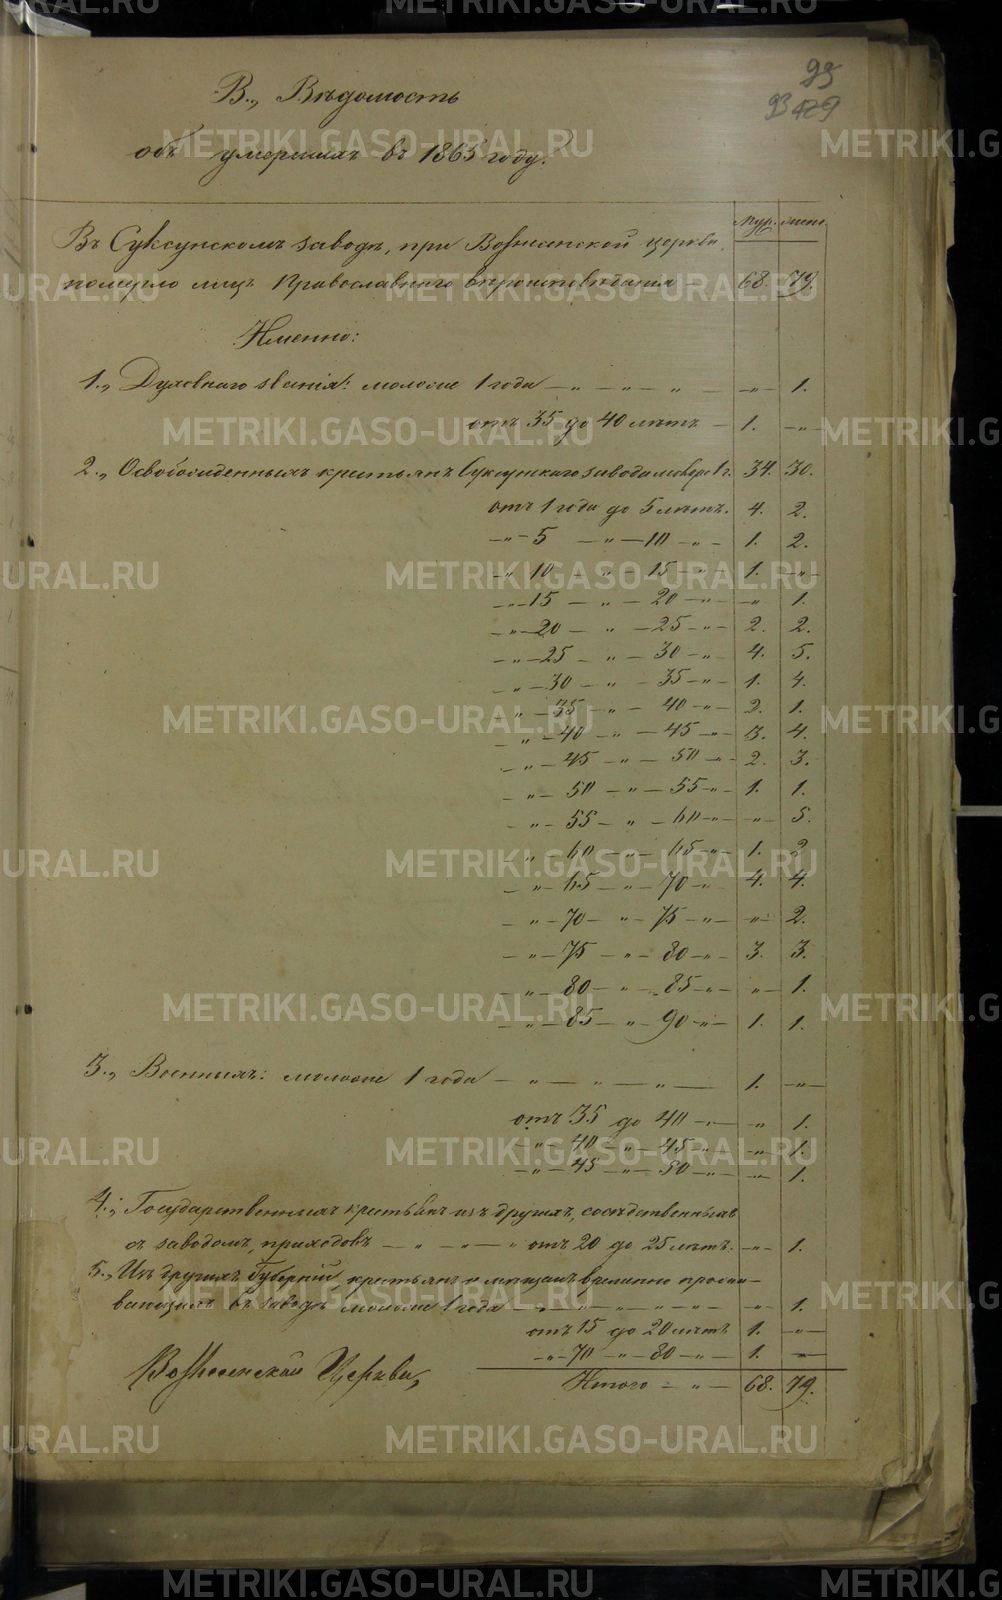 93
93 429
В., Вѣдомость
объ умершихъ въ 1865 году.
Муж. Женс.
Въ Суксунскомъ заводѣ, при Вознесенской церкви,
померло лицъ Православнаго вѣроисповѣданія — 68. 79.
Именно:
1., Духовнаго званія: моложе 1 года — „ — „ — „ — — „ — 1.
отъ 35 до 40 лѣтъ — 1. — „ —
2., Освобожденныхъ крестьянъ Суксунскаго завода моложе 1 г. 34. 30.
отъ 1 года до 5 лѣтъ. 4. 2.
— „ — 5 — „ — 10 — „ — 1. 2.
— „ 10 — „ 15 — „ — 1. — „ —
— „ — 15 — „ — 20 — „ — „ 1.
— „ — 20 — „ — 25 — „ — 2. 2.
— „ — 25 — „ — 30 — „ 4. 5.
— „ — 30 — „ — 35 — „ — 1. 4.
— „ — 35 — „ — 40 — „ — 2. 1.
— „ — 40 — „ — 45 — „ — 3. 4.
— „ — 45 — „ — 50 — „ — 2. 3.
— „ — 50 — „ — 55 — „ — 1. 1.
— „ — 55 — „ — 60 — „ — „ — 5.
— „ — 60 — „ — 65 — „ — 1. 2
— „ — 65 — „ — 70 — „ 4. 4.
— „ — 70 — „ — 75 — „ — „ — 2.
— „ — 75 — „ — 80 — „ — 3. 3.
— „ — 80 — „ — 85 — „ — „ — 1.
— „ — 85 — „ — 90 — „ — 1. 1.
3., Военныхъ: моложе 1 года — „ — „ — „ — 1. — „ —
отъ 35 до 40 — „ — „ 1.
— „ — 40 — „ — 45 — „ — „ — 1.
— „ — 45 — „ — 50 — „ — „ — 1.
4., Государственныхъ крестьянъ изъ другихъ, сосѣдственныхъ
съ заводомъ, приходовъ — „ — „ — „ отъ 20 до 25 лѣтъ. — „ — 1.
5., Изъ другихъ Губерній, крестьянъ и мѣщанъ временно прожи-
вающихъ въ заводѣ моложе 1 года — „ — „ — „ — „ — „ — 1.
отъ 15 до 20 лѣтъ 1. — „ —
— „ — 70 — „ — 80 — „ — 1. — „ —
Вознесенской Церкви,
Итого — „ — 68. 79.
METRIKI.GASO-URAL.RU